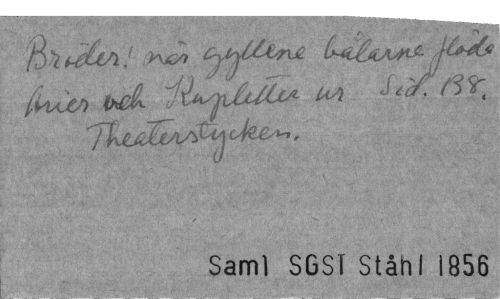 Bröder! när gyllene bålarne flöda
Arier och Kupletter ur Sid. 138.
Theaterstycken.
Saml SGST Ståhl 1856